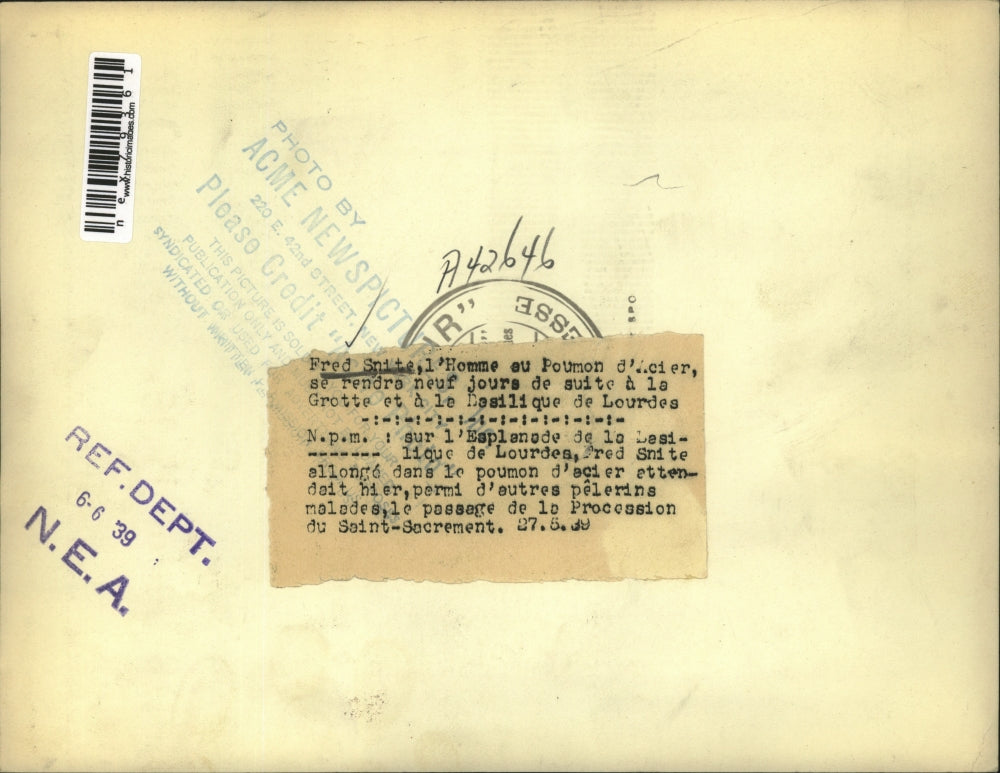 nex79361
www.historicimages.com
PHOTO BY
ACME NEWSPICTU
220 E. 42nd STREET, NEW
Please Credit "
THIS PICTURE IS SOL
PUBLICATION ONLY AN
SYNDICATED OR USED
WITHOUT WRITTEN
A42646
IR" ESSE
SPO
Fred Snite,l'Homme au Poumon d'Acier,
se rendra neuf jours de suite à la
Grotte et à la Basilique de Lourdes
-:-:-:-:-:-:-:-:-:-:-:-:-:-
N.p.m. : sur l'Esplanade de la Basi-
------- lique de Lourdes,Fred Snite
allongé dans le poumon d'acier atten-
dait hier,parmi d'autres pêlerins
malades,le passage de la Procession
du Saint-Sacrement. 27.5.39
REF. DEPT.
6-6 '39
N.E.A.